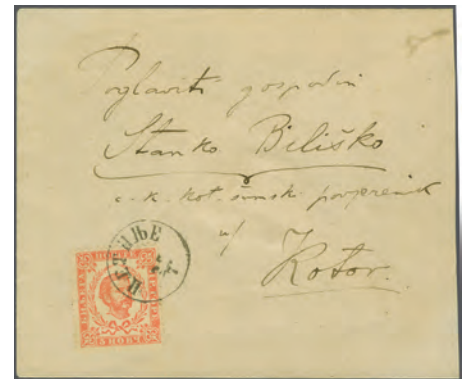 Poglaviti gospodin
Stanko Biliško
c. k. kot. šumsk. povjerenik
u/
Kotor.
ЦЕТИЊЕ